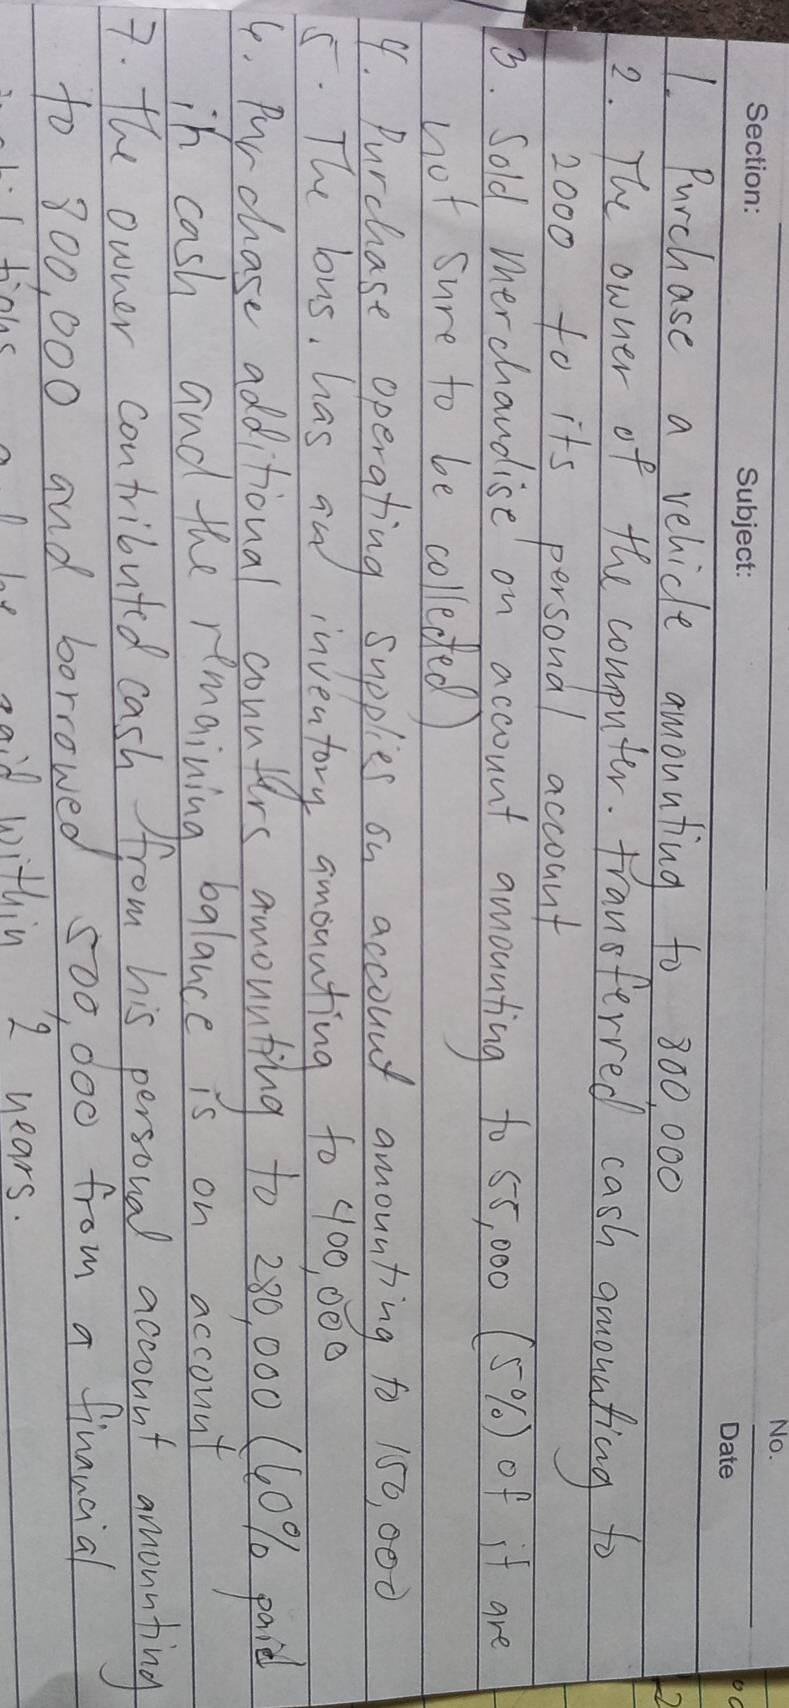 No.
Section: Subject: Date
1. Purchase a vehicle amounting to 800,000
2. The owner of the computer. transferred cash amounting to
2000 to its personal account
3. Sold Merchandise on account amounting to 55,000 (5%) of it are
not sure to be collected)
4. Purchase operating supplies on account amounting to 150,000
5. The bus. has an inventory amounting to 400,000
6. Purchase additional counters amounting to 280,000 (60% paid
in cash and the remaining balance is on account
7. The owner contributed cash from his personal account amounting
to 800,000 and borrowed 500,000 from a financial
within 2 years.